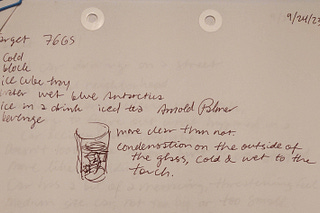 9/24/23
arget 76GS
Cold
block
ice cube tray
water wet blue Antarctica
ice in a drink iced tea Arnold Palmer
beverage
more clear than not.
condensation on the outside of
the glass, cold & wet to the
touch.